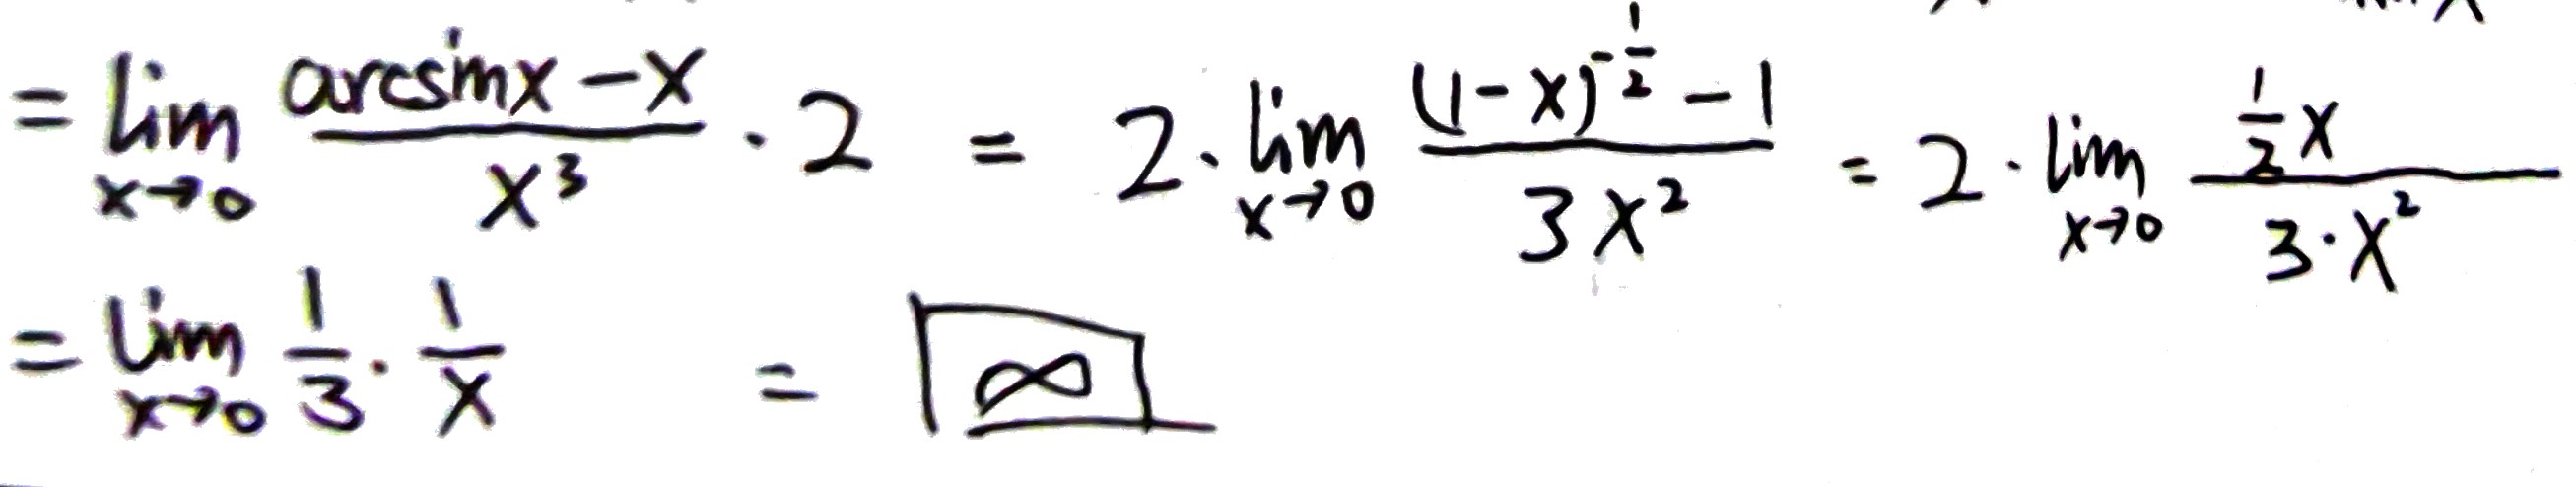 = lim x→0 (arcsinx - x)/x³ · 2 = 2 · lim x→0 ((1-x)^(-1/2) - 1)/(3x²) = 2 · lim x→0 (1/2 x)/(3·x²)
= lim x→0 1/3 · 1/x = ∞